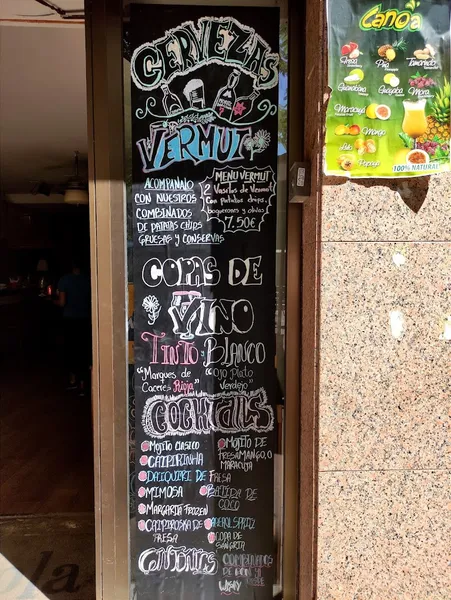 CERVEZAS
VERMUT
ACOMPAÑALO
CON NUESTROS
COMBINADOS
DE PATATAS CHIPS
GRUESAS Y CONSERVAS
MENU VERMUT
2 Vasitos de Vermut
Con patatas chips,
boquerones y olivas
7.50€
COPAS DE
VINO
TINTO
"Marques de
Caceres Rioja"
BLANCO
"Ojo Plato
Verdejo"
COCKTAILS
MOJITO CLASICO
CAIPIRINHA
DAIQUIRI DE FRESA
MIMOSA
MARGARITA FROZEN
CAIPIROSKA DE
FRESA
MOJITO DE
FRESA, MANGO, O
MARACUYA
BATIDA DE
COCO
APEROL SPRITZ
COPA DE
SANGRIA
COMBINADOS
DE RON, 
Canoa
Fresa
Piña
Tamarindo
Guanabana
Guayaba
Mora
Maracuya
Mango
Lulo
Papaya
100% NATURAL